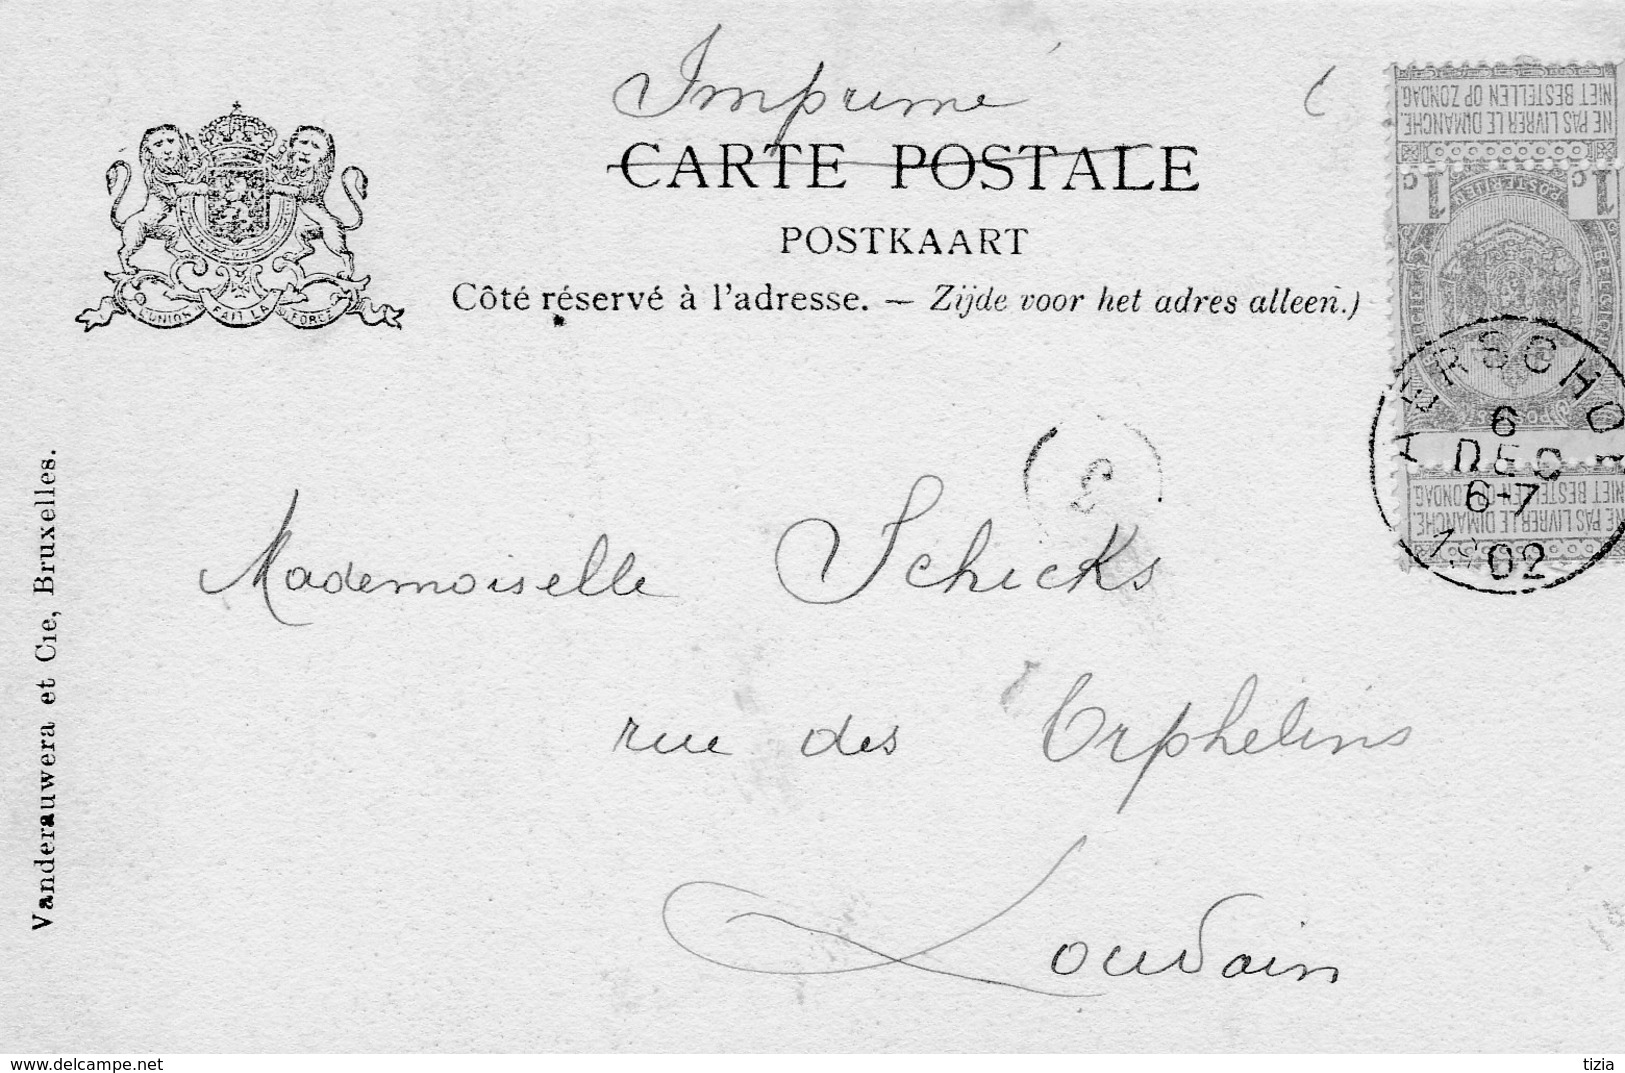 Imprimé
CARTE POSTALE
POSTKAART
Côté réservé à l'adresse. — Zijde voor het adres alleen.)
L'UNION FAIT LA FORCE
NIET BESTELLEN OP ZONDAG.
NE PAS LIVRER LE DIMANCHE.
1c 1c
POSTERIJEN
BELGIQUE
AERSCHOT
6
DEC
6-7
1902
NIET BESTELLEN OP ZONDAG.
NE PAS LIVRER LE DIMANCHE.
3
Mademoiselle Schicks
rue des Orphelins
Louvain
Vanderauwera et Cie, Bruxelles.
www.delcampe.net
tizia